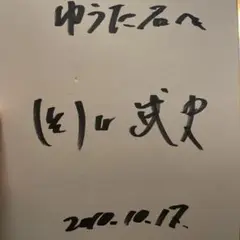 ゆうた君へ
武史
2010.10.17.